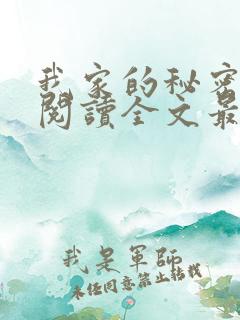 我家的秘密
閱讀全文最
我是軍師
未经同意禁止转载